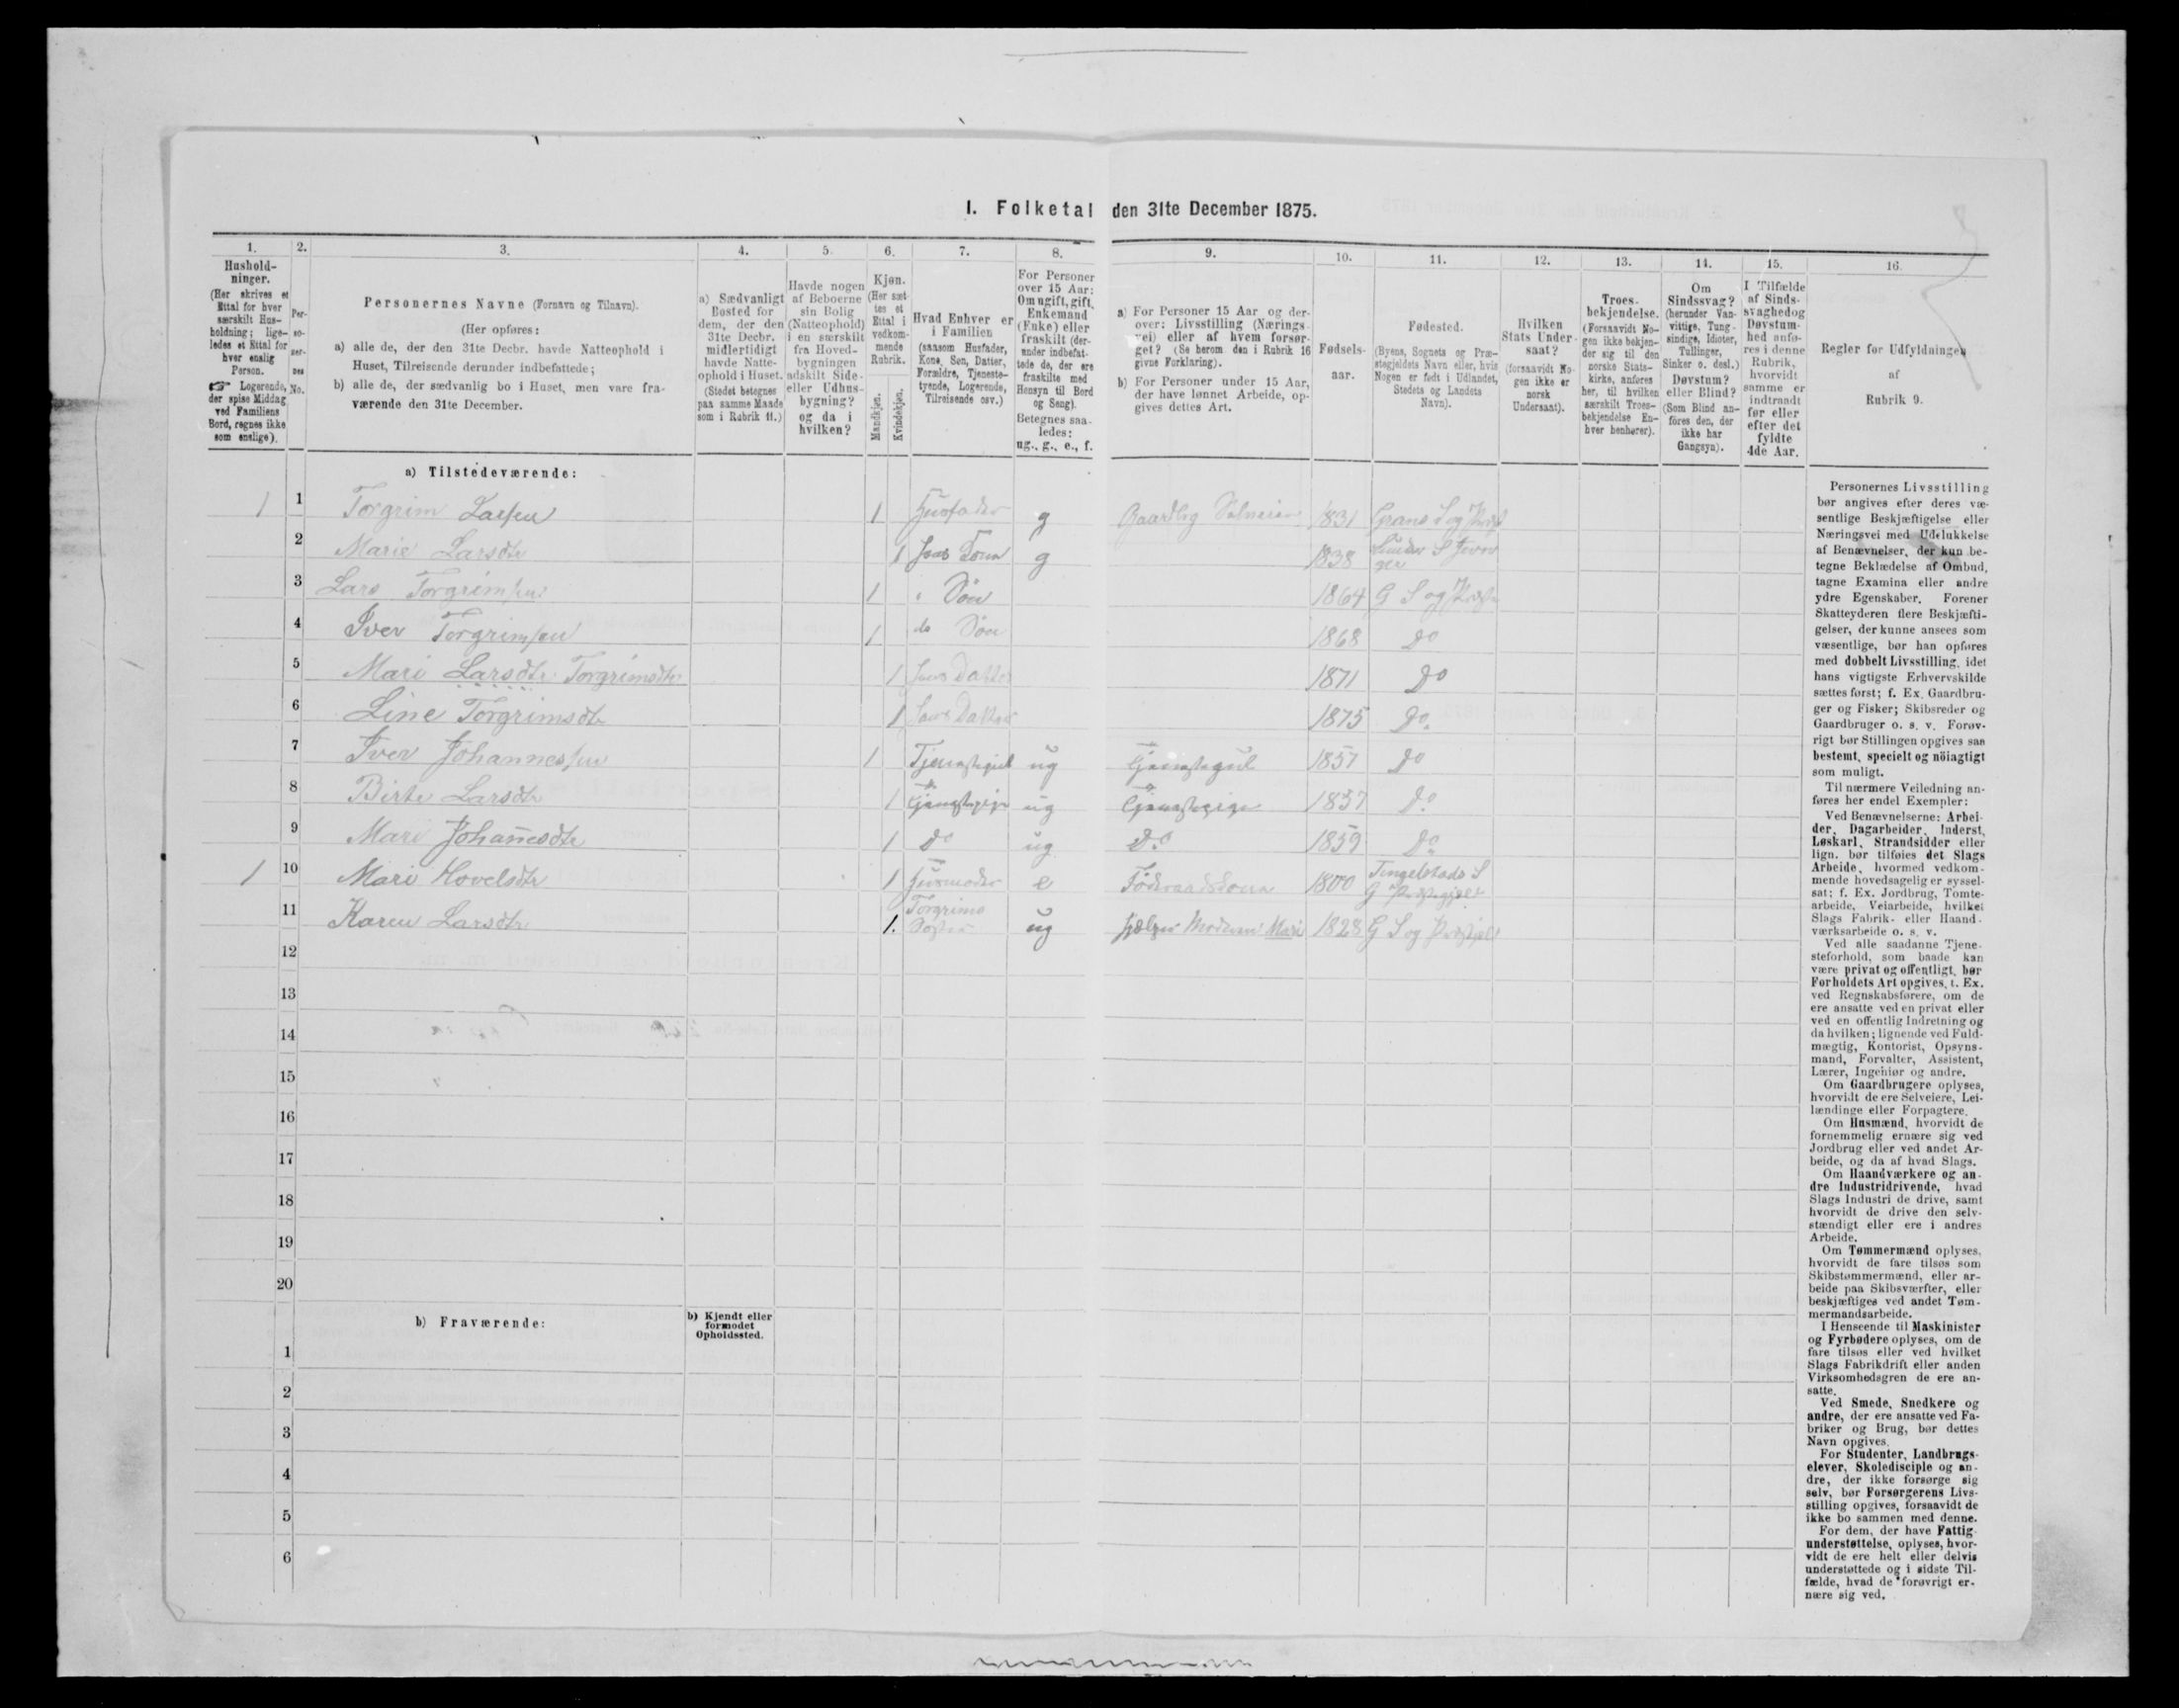 I. Folketal den 31te December 1875.
1.
Hushold-
ninger.
(Her skrives et
Ettal for hver
særskilt Hus-
holdning; lige-
ledes et Ettal for
hver enslig
Person.
☞ Logerende,
der spise Middag
ved Familiens
Bord, regnes ikke
som enslige).
2.
Per-
so-
ner-
nes
No.
3.
Personernes Navne (Fornavn og Tilnavn).
(Her opføres:
a) alle de, der den 31te Decbr. havde Natteophold i
Huset, Tilreisende derunder indbefattede;
b) alle de, der sædvanlig bo i Huset, men vare fra-
værende den 31te December.
4.
a) Sædvanligt
Bosted for
dem, der den
31te Decbr.
midlertidigt
havde Natte-
ophold i Huset.
(Stedet betegnes
paa samme Maade
som i Rubrik 11.)
5.
Havde nogen
af Beboerne
sin Bolig
(Natteophold)
i en særskilt
fra Hoved-
bygningen
adskilt Side-
eller Udhus-
bygning?
og da i
hvilken?
6.
Kjøn.
(Her sæt-
tes et
Ettal i
vedkom-
mende
Rubrik.
Mandkjøn.
Kvindekjøn.
7.
Hvad Enhver er
i Familien
(saasom Husfader,
Kone, Søn, Datter,
Forældre, Tjeneste-
tyende, Logerende,
Tilreisende osv.)
8.
For Personer
over 15 Aar:
Om ugift, gift,
Enkemand
(Enke) eller
fraskilt (der-
under indbefat-
tede de, der ere
fraskilte med
Hensyn til Bord
og Seng).
Betegnes saa-
ledes:
ug., g., e., f.
9.
a) For Personer 15 Aar og der-
over: Livsstilling (Nærings-
vei) eller af hvem forsør-
get? (Se herom den i Rubrik 16
givne Forklaring).
b) For Personer under 15 Aar,
der have lønnet Arbeide, op-
gives dettes Art.
10.
Fødsels-
aar.
11.
Fødested.
(Byens, Sognets og Præ-
stegjeldets Navn eller, hvis
Nogen er født i Udlandet,
Stedets og Landets
Navn).
12.
Hvilken
Stats Under-
saat?
(forsaavidt No-
gen ikke er
norsk
Undersaat).
13.
Troes-
bekjendelse.
(Forsaavidt No-
gen ikke bekjen-
der sig til den
norske Stats-
kirke, anføres
her, til hvilken
særskilt Troes-
bekjendelse En-
hver henhører).
14.
Om
Sindssvag?
(herunder Van-
vittige, Tung-
sindige, Idioter,
Tullinger,
Sinker o. desl.)
Døvstum?
eller Blind?
(Som Blind an-
føres den, der
ikke har
Gangsyn).
15.
I Tilfælde
af Sinds-
svaghed og
Døvstum-
hed anfø-
res i denne
Rubrik,
hvorvidt
samme er
indtraadt
før eller
efter det
fyldte
4de Aar.
16.
Regler for Udfyldningen
af
Rubrik 9.
a) Tilstedeværende:
1 1 Torgrim Larsen 1 Husfader g Gaardbrg Selveier 1831 Grans S og
2 Marie Larsdtr 1 hans Kone g 1838
3 Lars Torgrimsen 1 " Søn 1864 G S og
4 Iver Torgrimsen 1 do Søn 1868 Do
5 Mari Larsdtr Torgrimsdtr 1 hans Datter 1871 Do
6 Line Torgrimsdtr 1 hans Datter 1875 Do.
7 Iver Johannessen 1 Tjenestegut ug Tjenestegut 1857 Do
8 Birte Larsdtr 1 Tjenestepige ug Tjenestepige 1857 Do.
9 Mari Johanesdtr 1 Do ug Do 1859 Do
1 10 Mari Hovelsdtr 1 Husmoder e Føderaadskone 1800 Tingelstads S
G Præstegjeld
11 Karen Larsdtr 1. Torgrims
Søster ug hjelper Moderen Mari 1828 G S og
12
13
14
15
16
17
18
19
20
b) Fraværende:
b) Kjendt eller
formodet
Opholdssted.
1
2
3
4
5
6
Personernes Livsstilling
bør angives efter deres væ-
sentlige Beskjæftigelse eller
Næringsvei med Udelukkelse
af Benævnelser, der kun be-
tegne Beklædelse af Ombud,
tagne Examina eller andre
ydre Egenskaber. Forener
Skatteyderen flere Beskjæfti-
gelser, der kunne ansees som
væsentlige, bør han opføres
med dobbelt Livsstilling, idet
hans vigtigste Erhvervskilde
sættes først; f. Ex. Gaardbru-
ger og Fisker; Skibsreder og
Gaardbruger o. s. v. Forøv-
rigt bør Stillingen opgives saa
bestemt, specielt og nöiagtigt
som muligt.
Til nærmere Veiledning an-
føres her endel Exempler:
Ved Benævnelserne: Arbei-
der, Dagarbeider, Inderst,
Løskarl, Strandsidder eller
lign. bør tilføies det Slags
Arbeide, hvormed vedkom-
mende hovedsagelig er syssel-
sat; f. Ex. Jordbrug, Tomte-
arbeide, Veiarbeide, hvilket
Slags Fabrik- eller Haand-
værksarbeide o. s. v.
Ved alle saadanne Tjene-
steforhold, som baade kan
være privat og offentligt, bør
Forholdets Art opgives, t. Ex.
ved Regnskabsførere, om de
ere ansatte ved en privat eller
ved en offentlig Indretning og
da hvilken; lignende ved Fuld-
mægtig, Kontorist, Opsyns-
mand, Forvalter, Assistent,
Lærer, Ingeniør og andre.
Om Gaardbrugere oplyses,
hvorvidt de ere Selveiere, Lei-
lændinge eller Forpagtere.
Om Husmænd, hvorvidt de
fornemmelig ernære sig ved
Jordbrug eller ved andet Ar-
beide, og da af hvad Slags.
Om Haandværkere og an-
dre Industridrivende, hvad
Slags Industri de drive, samt
hvorvidt de drive den selv-
stændigt eller ere i andres
Arbeide.
Om Tømmermænd oplyses,
hvorvidt de fare tilsøs som
Skibstømmermænd, eller ar-
beide paa Skibsværfter, eller
beskjæftiges ved andet Tøm-
mermandsarbeide.
I Henseende til Maskinister
og Fyrbødere oplyses, om de
fare tilsøs eller ved hvilket
Slags Fabrikdrift eller anden
Virksomhedsgren de ere an-
satte.
Ved Smede, Snedkere og
andre, der ere ansatte ved Fa-
briker og Brug, bør dettes
Navn opgives.
For Studenter, Landbrugs-
elever, Skoledisciple og an-
dre, der ikke forsørge sig
selv, bør Forsørgerens Livs-
stilling opgives, forsaavidt de
ikke bo sammen med denne.
For dem, der have Fattig-
understøttelse, oplyses, hvor-
vidt de ere helt eller delvis
understøttede og i sidste Til-
fælde, hvad de forøvrigt er-
nære sig ved.